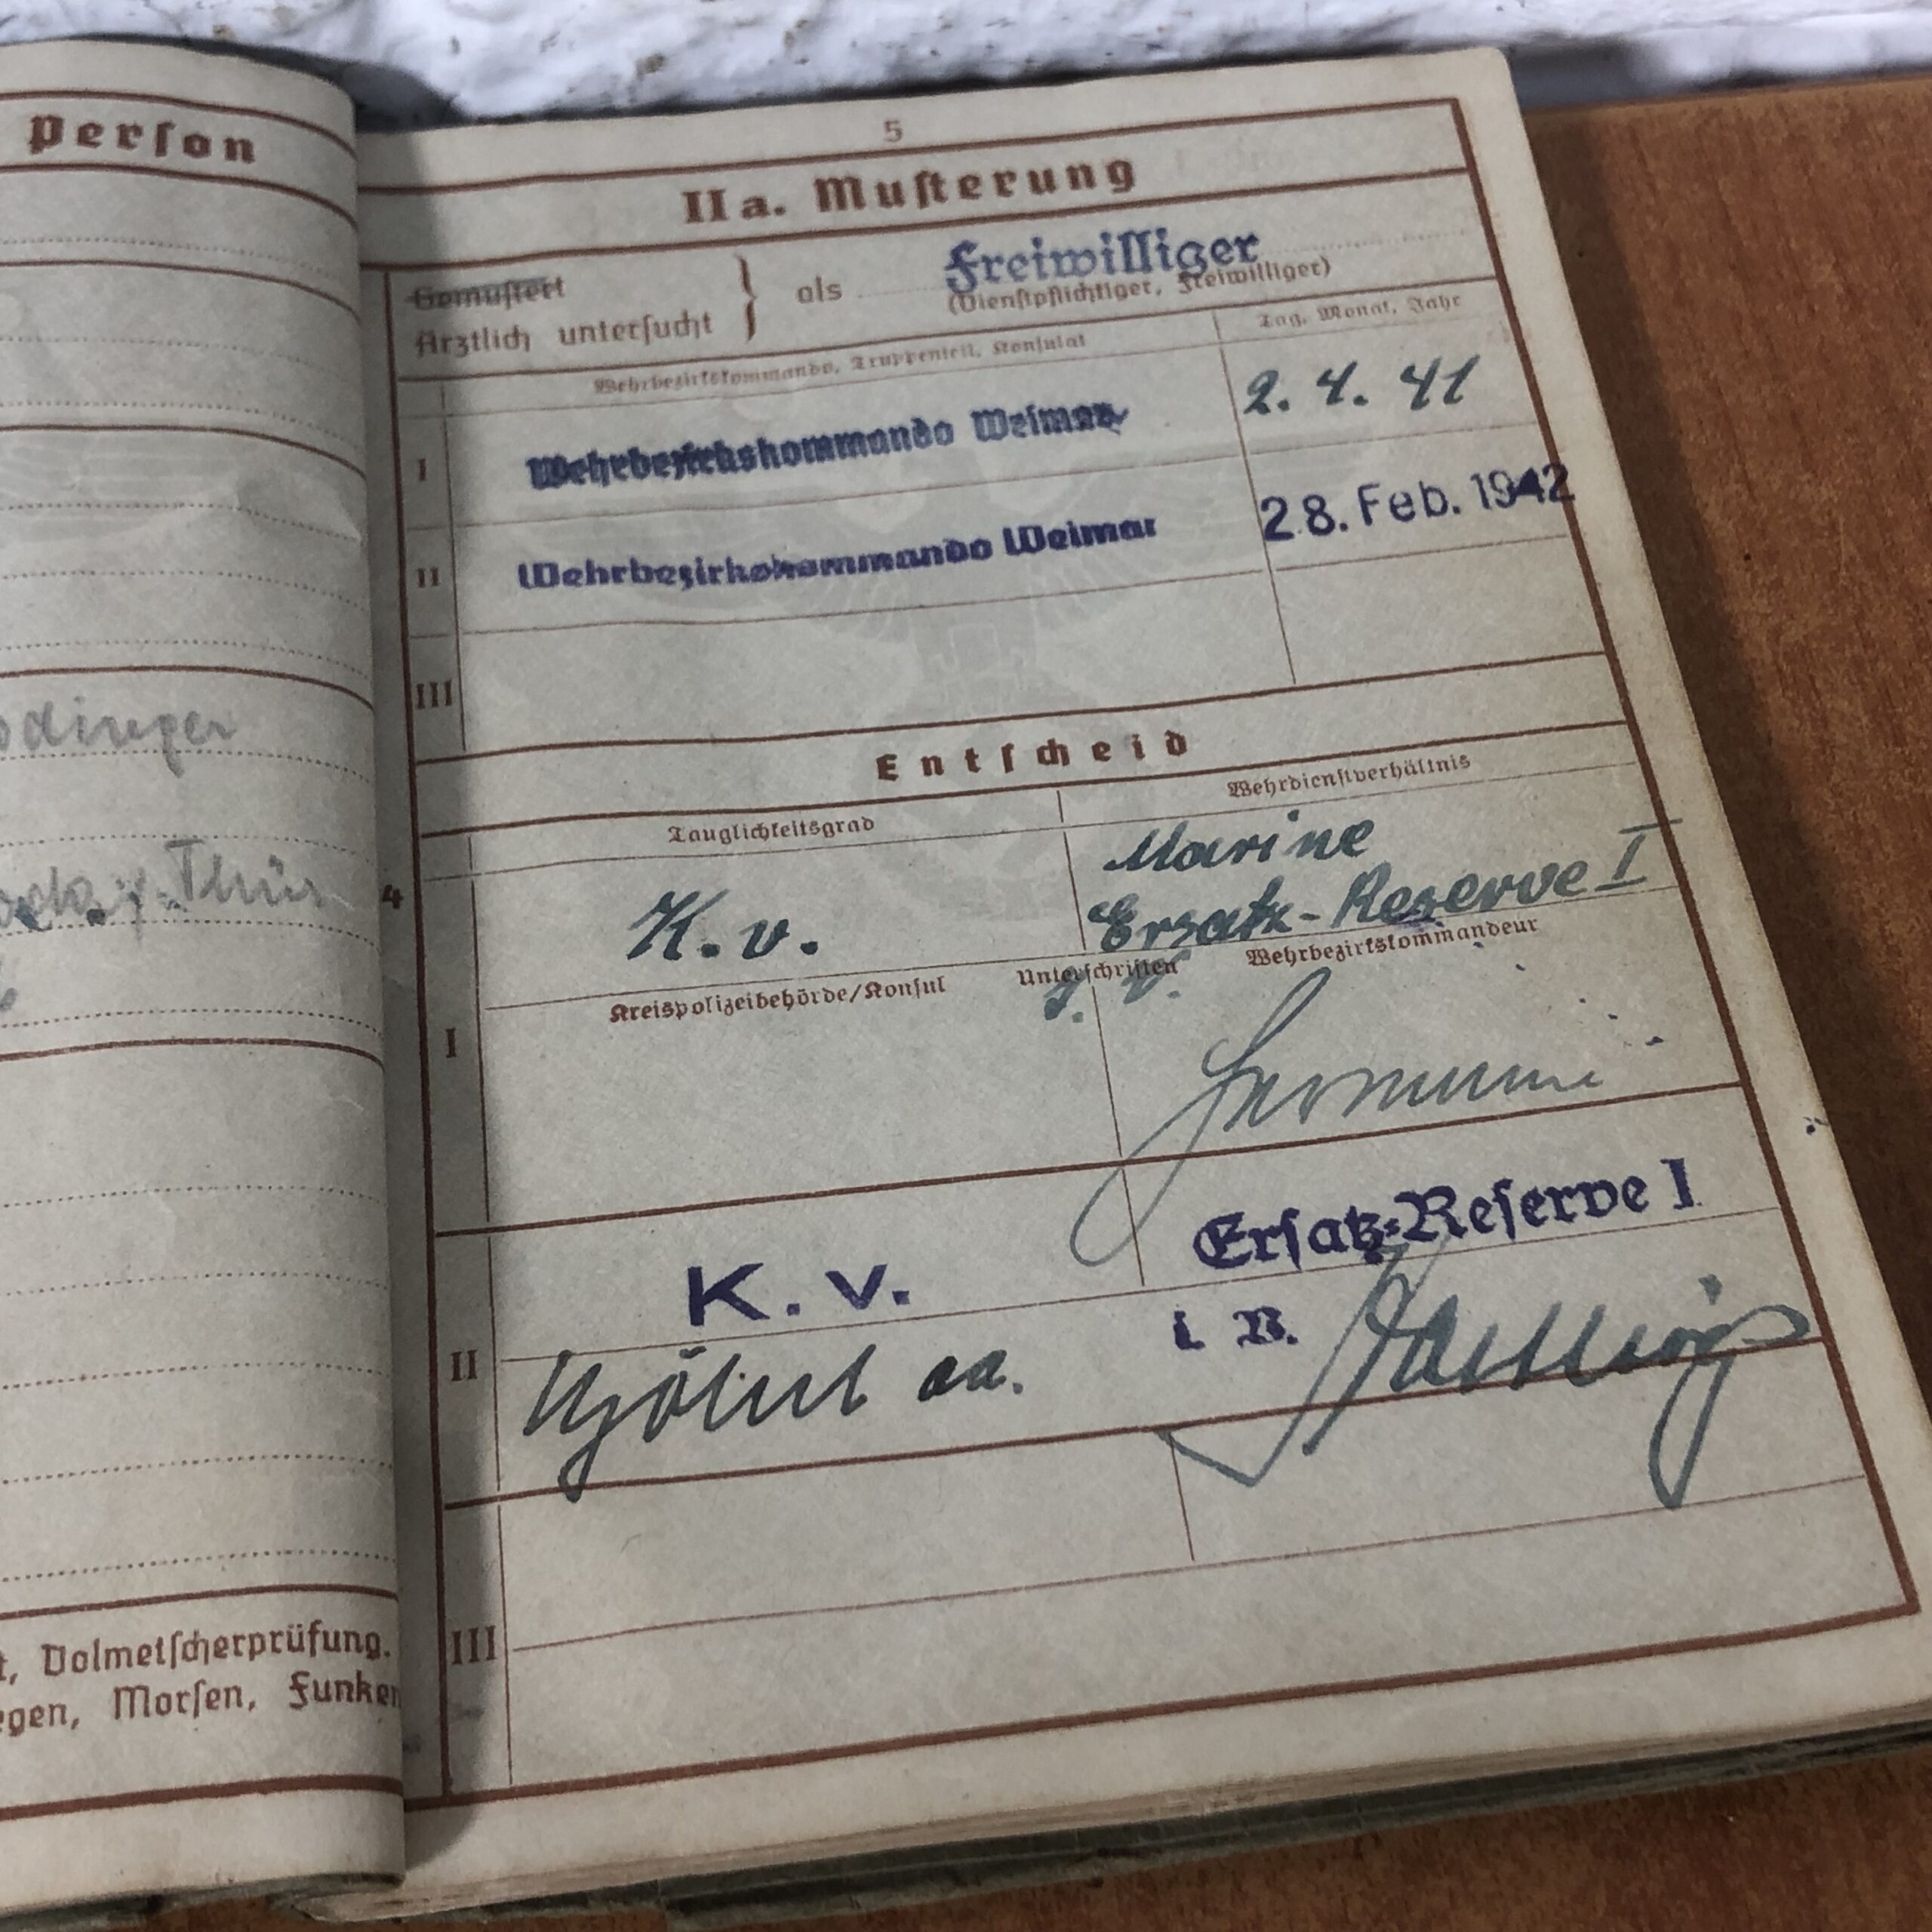 Person
dinger
Thür
t, Dolmetscherprüfung.
egen, Morsen, Funken
5
IIa. Musterung
Gemustert
Ärztlich untersucht } als Freiwilliger
(Dienstpflichtiger, Freiwilliger)
Wehrbezirkskommando, Truppenteil, Konsulat Tag, Monat, Jahr
I Wehrbezirkskommando Weimar 2. 4. 41
II Wehrbezirkskommando Weimar 28. Feb. 1942
III
Entscheid
Tauglichkeitsgrad Wehrdienstverhältnis
4 K. v. Marine
Ersatz-Reserve I
Kreispolizeibehörde/Konsul Unterschriften Wehrbezirkskommandeur
I
K. v. Ersatz-Reserve I
II i. V.
III